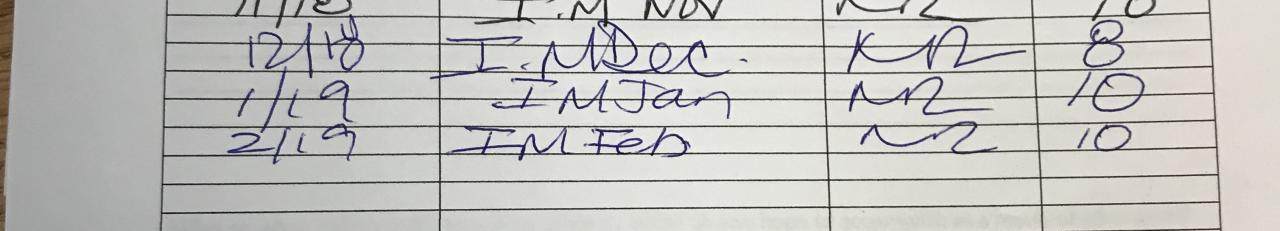 11/18 I.M Nov NR 10
12/18 I.M Dec. NR 8
1/19 IM Jan NR 10
2/19 IM Feb NR 10